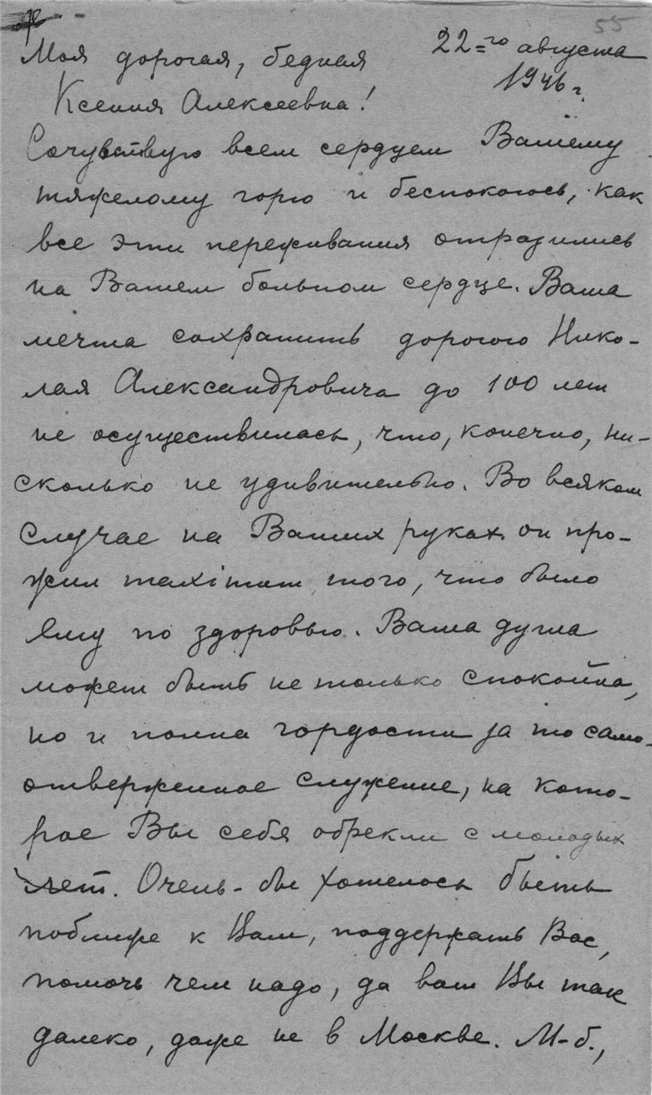 55
22=го августа
1946 г.
Моя дорогая, бедная
Ксения Алексеевна!
Сочувствую всем сердцем Вашему
тяжелому горю и беспокоюсь, как
все эти переживания отразились
на Вашем больном сердце. Ваша
мечта сохранить дорогого Нико-
лая Александровича до 100 лет
не осуществилась, что, конечно, ни-
сколько не удивительно. Во всяком
случае на Ваших руках он про-
жил maximum того, что было
ему по здоровью. Ваша душа
может быть не только спокойна,
но и полна гордости за то само-
отверженное служение, на кото-
рое Вы себя обрекли с молодых
лет. Очень-бы хотелось быть
поближе к Вам, поддержать Вас,
помочь чем надо, да вот Вы так
далеко, даже не в Москве. М-б.,